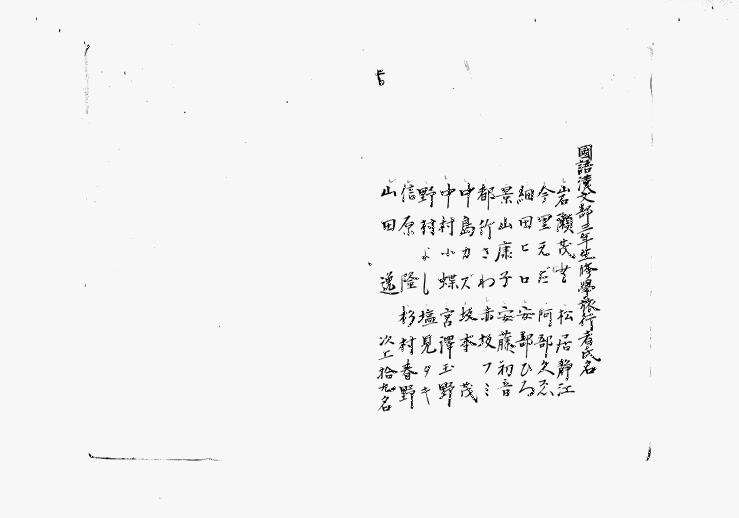 國語漢文部三年生修學旅行者氏名
岩瀬茂世 松居靜江
今里元 阿部久
細田ヒロ 安部ひろ
景山康子 安藤初音
都竹さわ 赤坂フミ
中島カズ 坂本茂
中村小蝶 宮澤玉野
野村よし 塩見タキ
信原隆 杉村春野
山田逸 以上拾九名